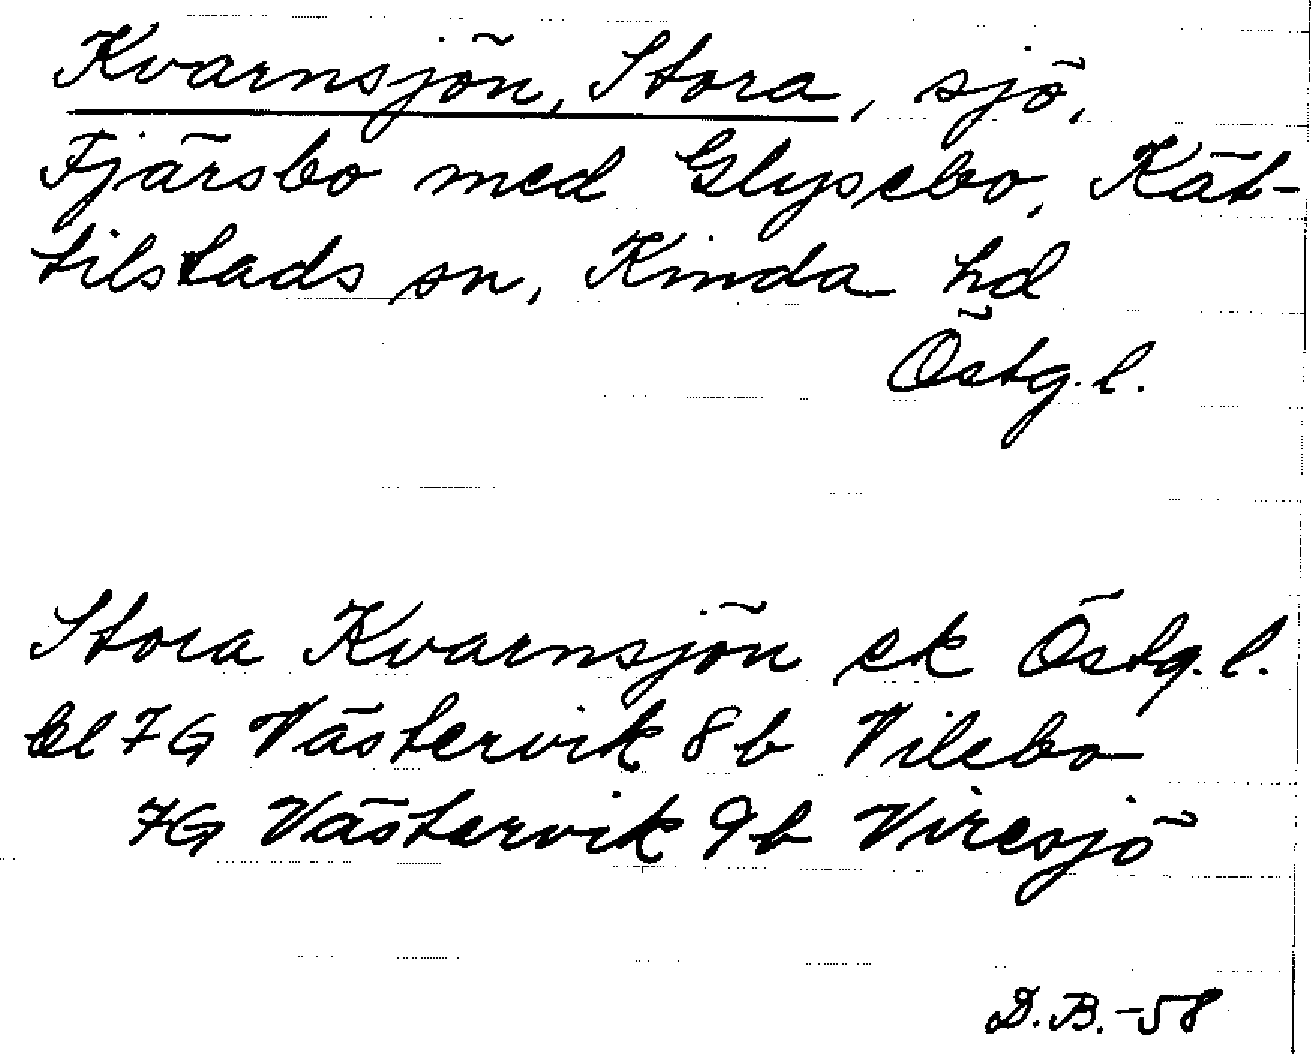 Kvarnsjön, Stora, sjö,
Fjärsbo med Glysebo, Kät-
tilstads sn, Kinda hd
Östg. l.
Stora Kvarnsjön ek Östg. l.
bl 7G Västervik 8b Vilebo
7G Västervik 9b Viresjö
D.B.-58